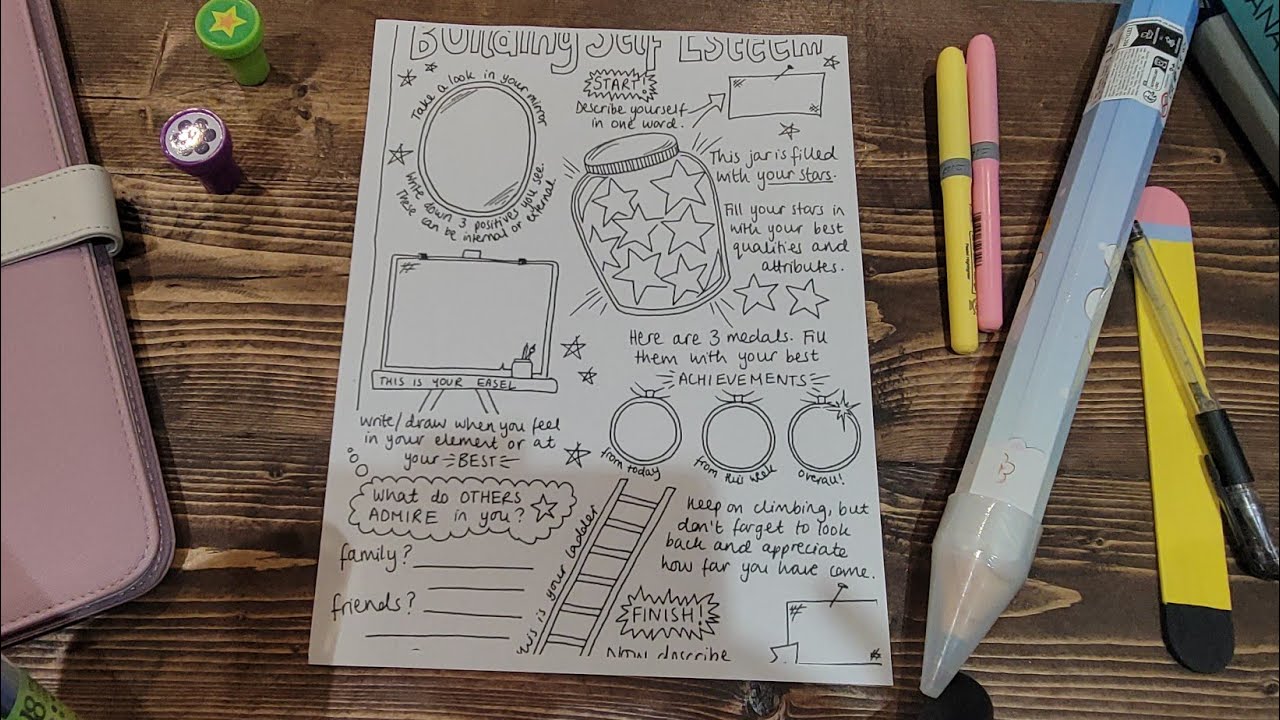 Building Self Esteem
Take a look in your mirror
Write down 3 positives you see.
These can be internal or external
START!
Describe yourself
in one word.
This jar is filled
with your stars.
Fill your stars in
with your best
qualities and
attributes.
THIS IS YOUR EASEL
Write/draw when you feel
in your element or at
your BEST
Here are 3 medals. Fill
them with your best
ACHIEVEMENTS
from today
from this week
overall!
What do OTHERS
ADMIRE in you?
family?
friends?
this is your ladder
Keep on climbing, but
don't forget to look
back and appreciate
how far you have come.
FINISH!
Now describe